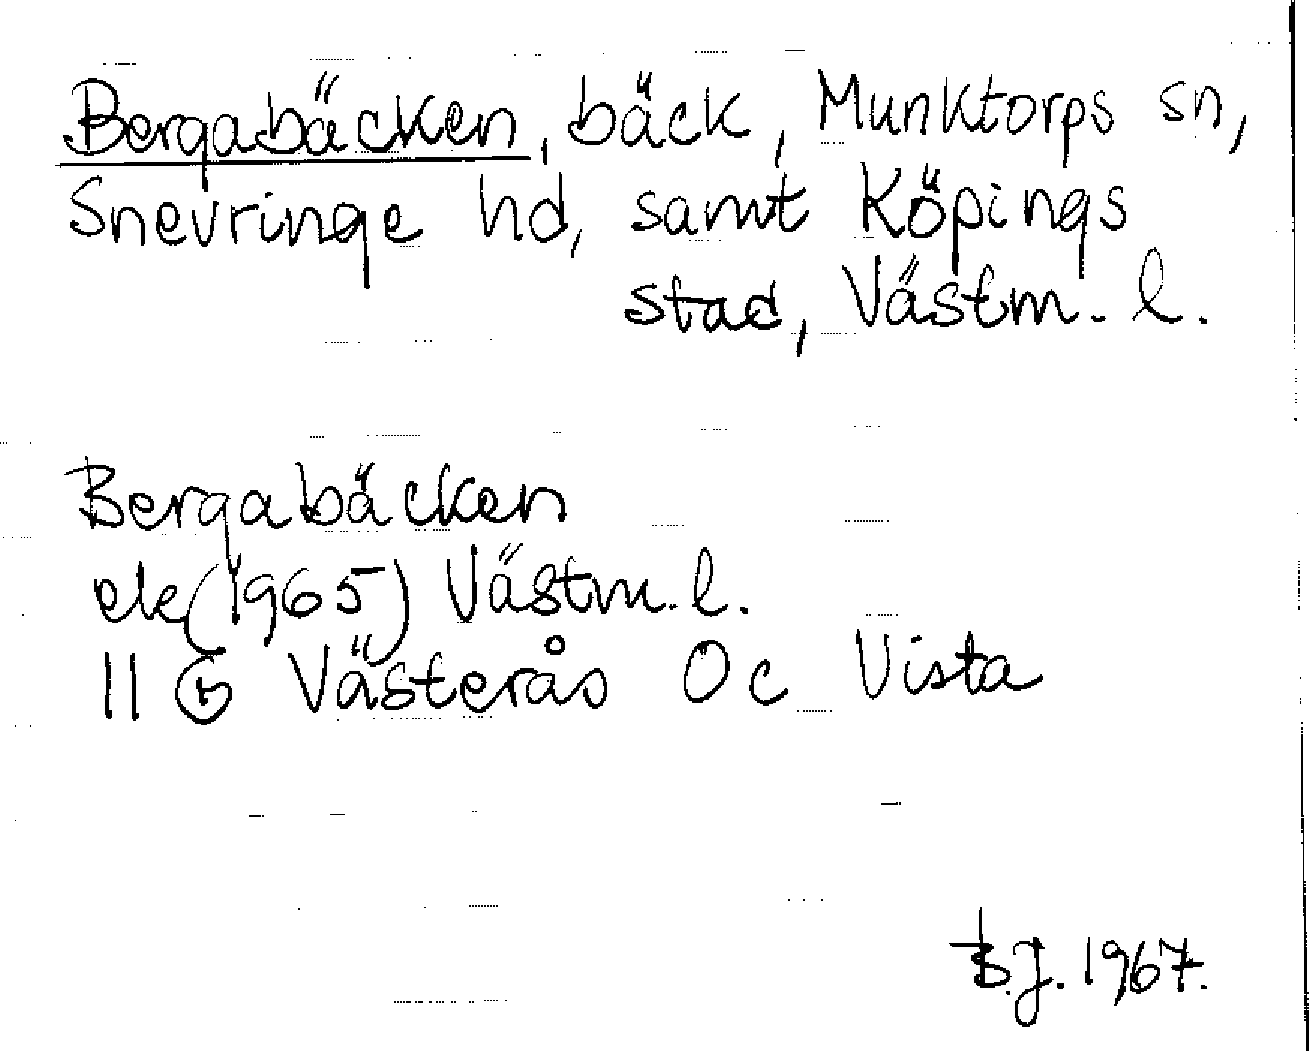 Bergabäcken, bäck, Munktorps sn,
Snevringe hd, samt Köpings
stad, Västm. l.
Bergabäcken
ek (1965) Västm. l.
11 G Västerås Oc Vista
B.J. 1967.